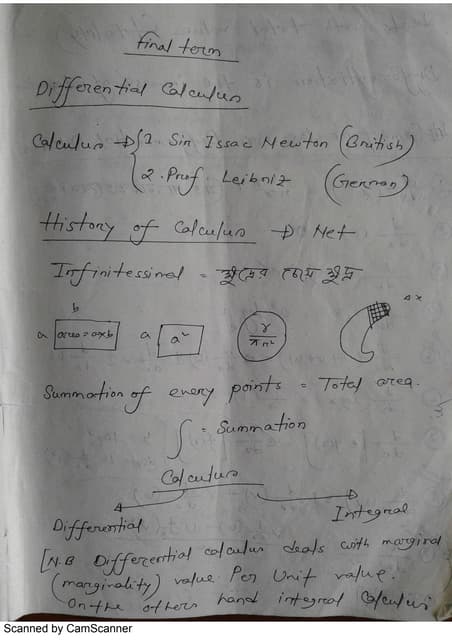 Final term
Differential Calculus
Calculus → { 1. Sir Issac Newton (British)
2. Prof. Leibniz (German)
History of Calculus → Net
Infinitessimal = ক্ষুদ্রের চেয়ে ক্ষুদ্র
b
a area = axb a a² r πr² Δx
Summation of every points = Total area.
∫ = Summation
Calculus
Differential Integral
[N.B Differential calculus deals with marginal
(marginality) value Per Unit value.
On the others hand integral Calculus
Scanned by CamScanner